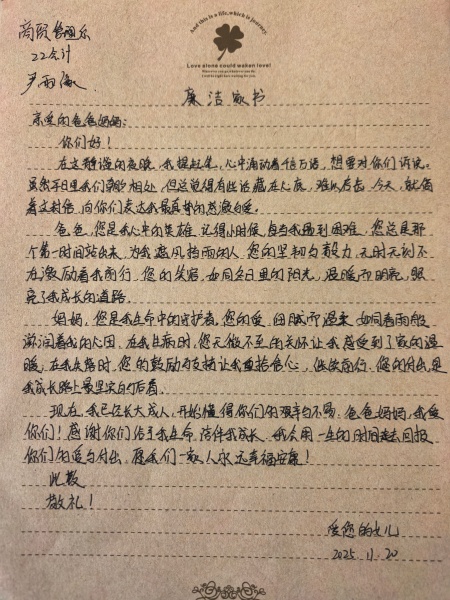 And this is a life, which is journey
Love alone could waken love!
商贸管理系
22会计
尹雨
廉洁家书
亲爱的爸爸妈妈：
你们好！
在这静谧的夜晚，我提起笔，心中涌动着千言万语，想要对你们诉说。
虽然平日里我们朝夕相处，但总觉得有些话藏在心底，难以启齿。今天，就借
着这封信，向你们表达我最真挚的感激与爱。
爸爸，您是我心中的英雄。记得小时候，每当我遇到困难，您总是那
个第一时间站出来，为我遮风挡雨的人。您的坚韧与毅力，无时无刻不
在激励着我前行。您的笑容，如同冬日里的阳光，温暖而明亮，照
亮了我成长的道路。
妈妈，您是我生命中的守护者。您的爱，细腻而温柔，如同春雨般
滋润着我的心田。在我生病时，您无微不至的关怀让我感受到了家的温
暖。在我失落时，您的鼓励与支持让我重拾信心，继续前行。您的付出，是
我成长路上最坚实的后盾。
现在，我已经长大成人，开始懂得你们的艰辛与不易。爸爸妈妈，我爱
你们！感谢你们给予我生命，陪伴我成长。我会用一生的时间去回报
你们的爱与付出，愿我们一家人永远幸福安康！
此致
敬礼！
爱您的女儿
2025.11.20